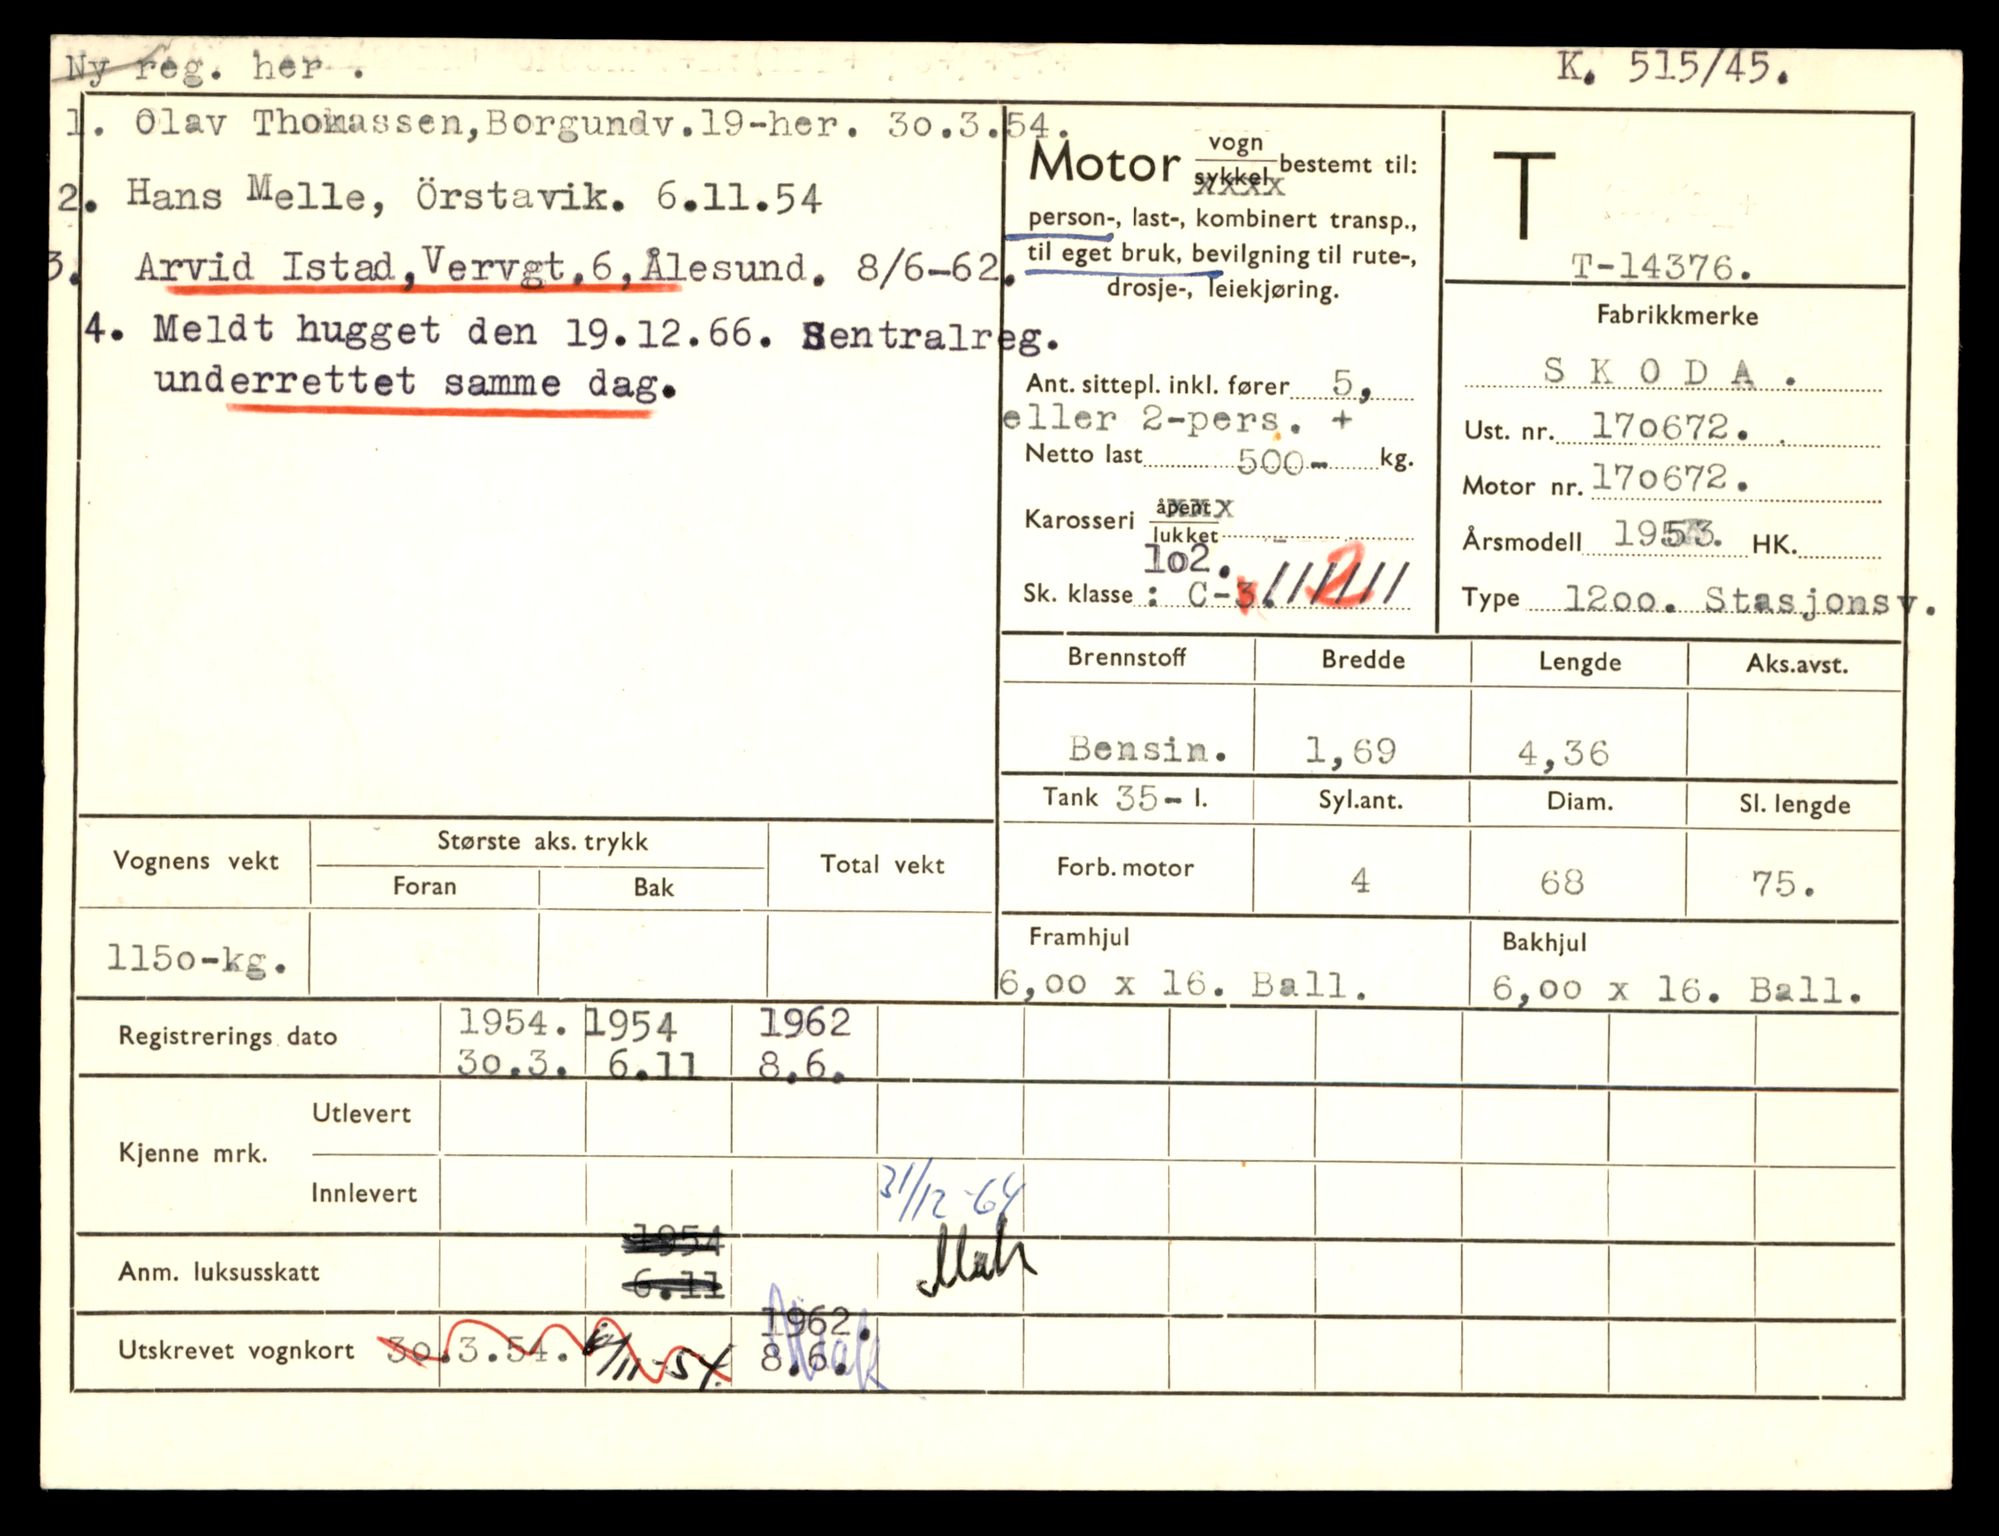 Ny reg. her .
K. 515/45.
1. Olav Thomassen,Borgundv.19-her. 30.3.54.
2. Hans Melle, Örstavik. 6.11.54
3. Arvid Istad,Vervgt.6,Ålesund. 8/6-62.
4. Meldt hugget den 19.12.66. Sentralreg.
underrettet samme dag.
Motor vogn sykkel bestemt til:
person-, last-, kombinert transp.,
til eget bruk, bevilgning til rute-,
drosje-, leiekjøring.
Ant. sittepl. inkl. fører 5,
eller 2-pers. +
Netto last 500- kg.
Karosseri åpent lukket
102.
Sk. klasse : C-3. 2
T
T-14376.
Fabrikkmerke
SKODA.
Ust. nr. 170672.
Motor nr. 170672.
Årsmodell 1953. HK.
Type 1200. Stasjonsv.
Brennstoff Bredde Lengde Aks.avst.
Bensin. 1,69 4,36
Tank 35- l. Syl.ant. Diam. Sl. lengde
Forb. motor 4 68 75.
Framhjul Bakhjul
6,00 x 16. Ball. 6,00 x 16. Ball.
Vognens vekt Største aks. trykk Total vekt
Foran Bak
1150-kg.
Registrerings dato 1954. 1954 1962
30.3. 6.11 8.6.
Kjenne mrk. Utlevert
Innlevert 31/12-64
Anm. luksusskatt 1954
6.11
Utskrevet vognkort 30.3.54. 6/11-54. 1962.
8.6.